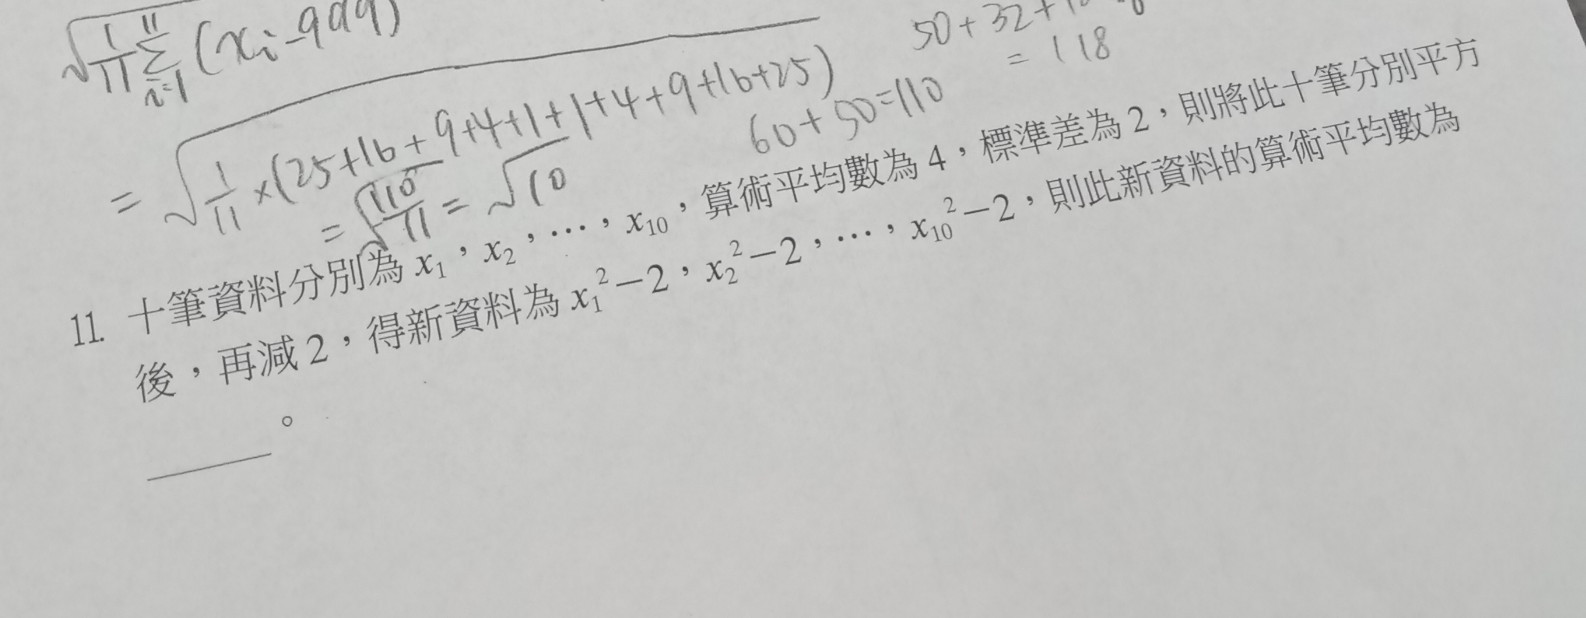 √(1/11 Σ_{i=1}^{11} (xᵢ-999)
50+32+
=118
= √(1/11 ×(25+16+9+4+1+1+4+9+16+25))
60+50=110
= √(110/11) = √10
11. 十筆資料分別為 x₁,x₂,⋯,x₁₀,算術平均數為 4,標準差為 2,則將此十筆分別平方
後,再減 2,得新資料為 x₁²−2,x₂²−2,⋯,x₁₀²−2,則此新資料的算術平均數為
______。